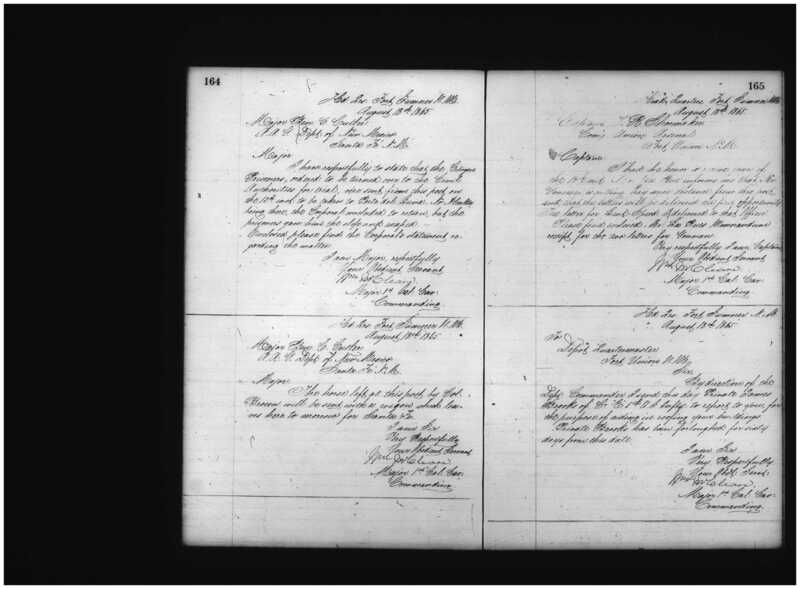 164
Hd. Qrs. Fort Sumner N. M.
August 18th 1865
Major Ben C. Cutler
A. A. G. Dept. of New Mexico
Santa Fe N. M.
Major
I have respectfully to state that the
Prisoners, ordered to be turned over to the Civil
Authorities for trial, were sent from this post on
the 10th and to be taken to
being here, the Corporal concluded to return, but the
prisoners gave him the slip and escaped.
Enclosed please find the Corporal's statement re-
garding the matter
I am Major, respectfully
Your Obedient Servant
Wm McCleave
Major 1st Cal. Cav.
Commanding
Hd. Qrs. Fort Sumner N. M.
August 18th 1865
Major Ben C. Cutler
A. A. G. Dept. of New Mexico
Santa Fe N. M.
Major
The horse left at this post by Col.
will be sent with a wagon which lea-
ves here to morrow for Santa Fe.
I am Sir
Very Respectfully
Your Obedient Servant
Wm McCleave
Major 1st Cal. Cav.
Commanding
165
Head Quarters Fort Sumner N. M.
August 18th 1865
Captain R. Shoemaker
Com'g Union Arsenal
Fort Union N. M.
Captain
I had the honor
the 10th
from this post
and that the letters will be delivered the first opportunity
The letter for
Please find enclosed Mr.
receipt for the two letters for
Very respectfully I am Captain
Your Obedient Servant
Wm McCleave
Major 1st Cal. Cav.
Commanding
Hd. Qrs. Fort Sumner N. M.
August 18th 1865
To
Depot Quartermaster
Fort Union N. M.
Sir
By direction of the
Commander I send this day Private James
Brooks of Co. to report to you for
the purpose of aiding in roofing your buildings
Private Brooks has been furloughed for sixty
days from this date.
I am Sir
Very Respectfully
Your Obdt. Servt.
Wm McCleave
Major 1st Cal. Cav.
Commanding